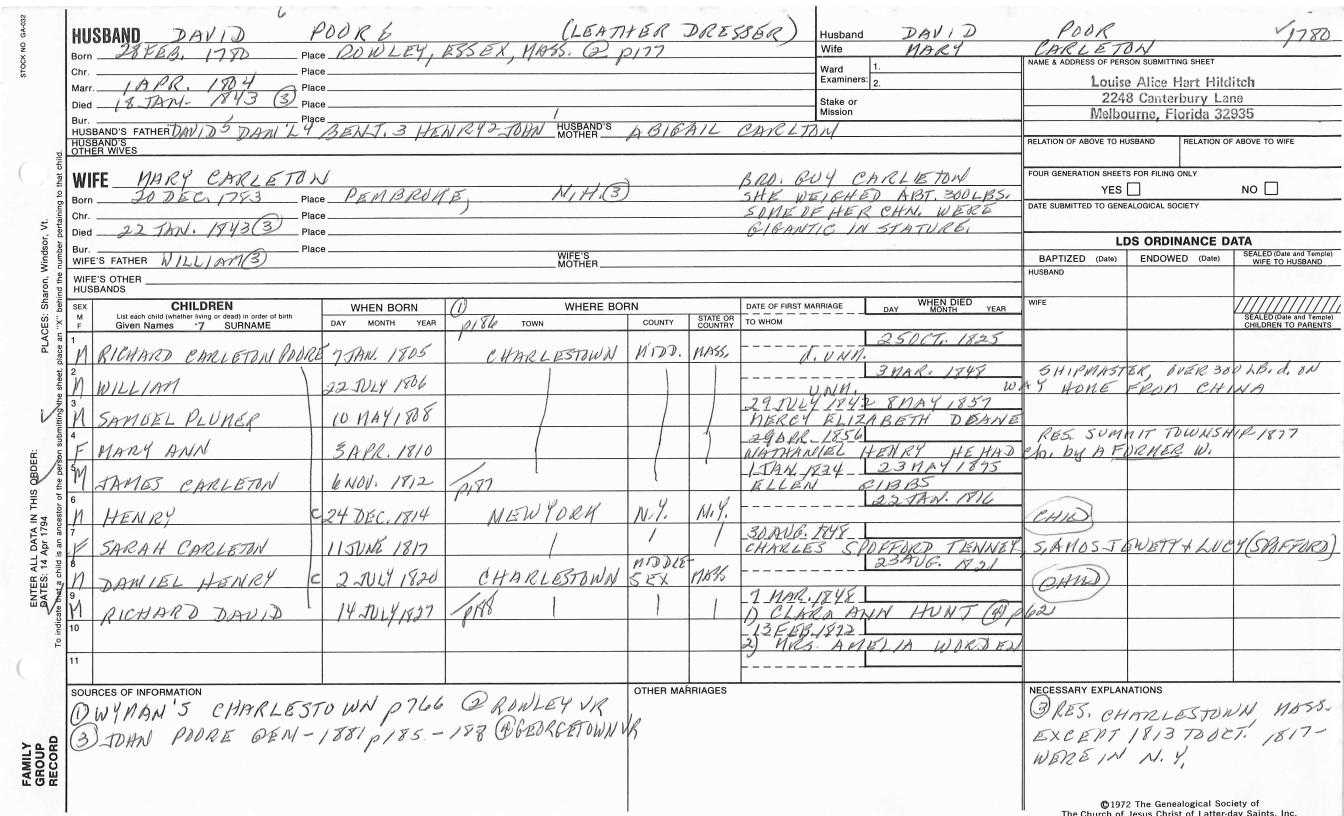 6
STOCK NO. GA-032
HUSBAND DAVID POOR 6 (LEATHER DRESSER)
Born 28 FEB. 1780 Place ROWLEY, ESSEX, MASS. (2) p177
Chr. Place
Marr. 1 APR. 1804 Place
Died 18 JAN- 1843 (3) Place
Bur. Place
HUSBAND'S FATHER DAVID 5 DAN'L 4 BENJ. 3 HENRY 2 JOHN 1 HUSBAND'S MOTHER ABIGAIL CARLTON
HUSBAND'S OTHER WIVES
WIFE MARY CARLETON
Born 20 DEC. 1783 Place PEMBROKE, N.H. (3)
Chr. Place
Died 22 JAN. 1843 (3) Place
Bur. Place
WIFE'S FATHER WILLIAM (3) WIFE'S MOTHER
WIFE'S OTHER HUSBANDS
BRO. GUY CARLETON
SHE WEIGHED ABT. 300 LBS.
SOME OF HER CHN. WERE
GIGANTIC IN STATURE.
Husband DAVID POOR √1780
Wife MARY CARLETON
Ward Examiners: 1.
2.
Stake or Mission
NAME & ADDRESS OF PERSON SUBMITTING SHEET
Louise Alice Hart Hilditch
2248 Canterbury Lane
Melbourne, Florida 32935
RELATION OF ABOVE TO HUSBAND RELATION OF ABOVE TO WIFE
FOUR GENERATION SHEETS FOR FILING ONLY
YES NO
DATE SUBMITTED TO GENEALOGICAL SOCIETY
LDS ORDINANCE DATA
BAPTIZED (Date) ENDOWED (Date) SEALED (Date and Temple) WIFE TO HUSBAND
HUSBAND
WIFE
SEALED (Date and Temple) CHILDREN TO PARENTS
SEX M F
CHILDREN
List each child (whether living or dead) in order of birth
Given Names 7 SURNAME
WHEN BORN
DAY MONTH YEAR
(1) p186
WHERE BORN
TOWN COUNTY STATE OR COUNTRY
DATE OF FIRST MARRIAGE
TO WHOM
WHEN DIED
DAY MONTH YEAR
1 M RICHARD CARLETON POORE 7 JAN. 1805 CHARLESTOWN MIDD. MASS. 25 OCT. 1825
d. UNM.
2 M WILLIAM 22 JULY 1806 3 MAR. 1848
UNM. SHIPMASTER, OVER 300 LB. d. ON
WAY HOME FROM CHINA
3 M SAMUEL PLUMER 10 MAY 1808 29 JULY 1842 8 MAY 1857
MERCY ELIZABETH DEANE
4 F MARY ANN 3 APR. 1810 29 APR. 1856
NATHANIEL HENRY HE HAD ch. by A FORMER W.
RES. SUMMIT TOWNSHIP 1877
5 M JAMES CARLETON 6 NOV. 1812 p187 1 JAN. 1834 23 MAY 1875
ELLEN GIBBS
6 M HENRY C 24 DEC. 1814 NEW YORK N.Y. N.Y. 22 JAN. 1816
CHILD
7 F SARAH CARLETON 11 JUNE 1817 30 AUG. 1848
CHARLES SPOFFORD TENNEY, S. AMOS JEWETT & LUCY (SPAFFORD)
8 M DANIEL HENRY C 2 JULY 1820 CHARLESTOWN MIDDLESEX MASS 23 AUG. 1821
CHILD
9 M RICHARD DAVID 14 JULY 1827 p188 7 MAR. 1848
1) CLARA ANN HUNT (4) p62
10 13 FEB. 1872
2) MRS. AMELIA WORDEN
11
SOURCES OF INFORMATION
(1) WYMAN'S CHARLESTOWN p766 (2) ROWLEY VR
(3) JOHN POORE GEN - 1881 p185 - 188 (4) GEORGETOWN VR
OTHER MARRIAGES
NECESSARY EXPLANATIONS
(3) RES. CHARLESTOWN MASS.
EXCEPT 1813 TO OCT. 1817-
WERE IN N.Y.
©1972 The Genealogical Society of
The Church of Jesus Christ of Latter-day Saints, Inc.
FAMILY GROUP RECORD
ENTER ALL DATA IN THIS ORDER:
DATES: 14 Apr 1794
PLACES: Sharon, Windsor, Vt.
To indicate that a child is an ancestor of the person submitting the sheet, place an "X" behind the number pertaining to that child.